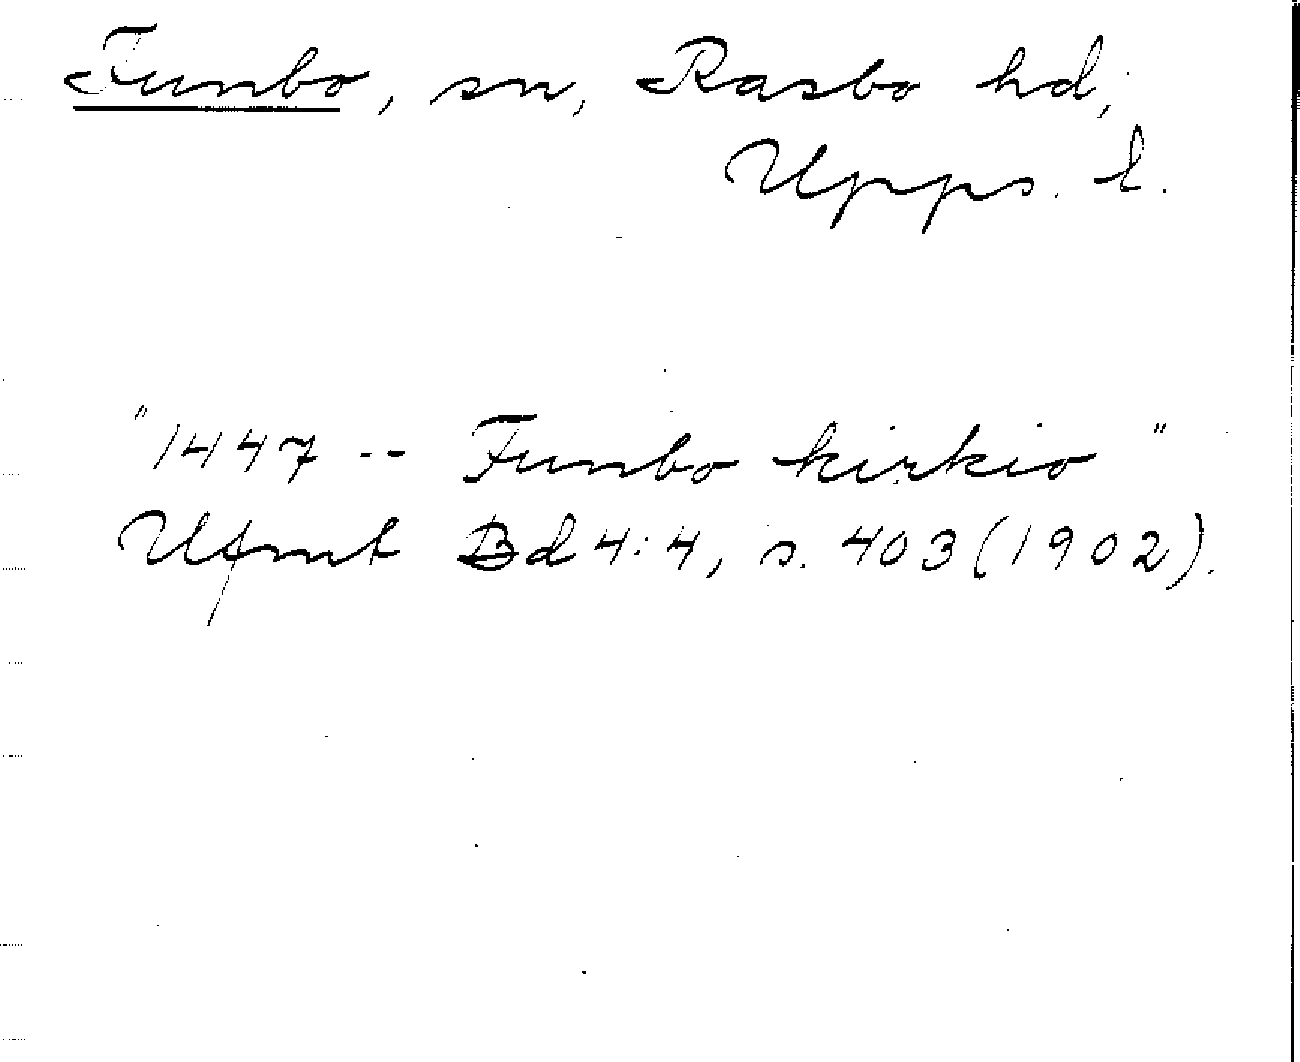 Funbo, sn, Rasbo hd,
Upps. l.
"1447 -- Funbo kirkio"
Ufmt Bd 4:4, s. 403 (1902).